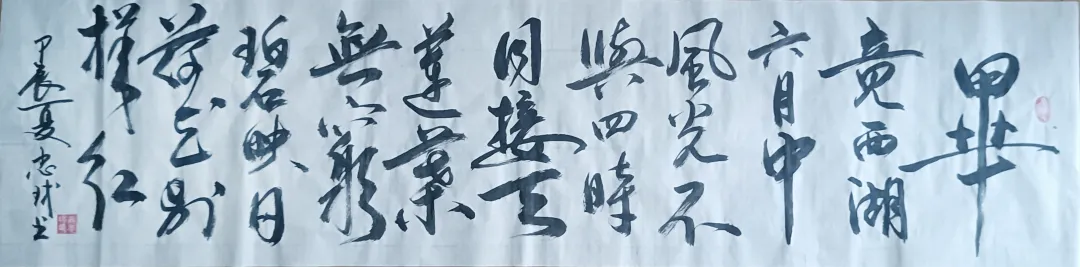 畢
竟西湖
六月中
風光不
與四時
同接天
蓮葉
無窮
碧映日
荷花別
樣紅
甲辰夏忠球书